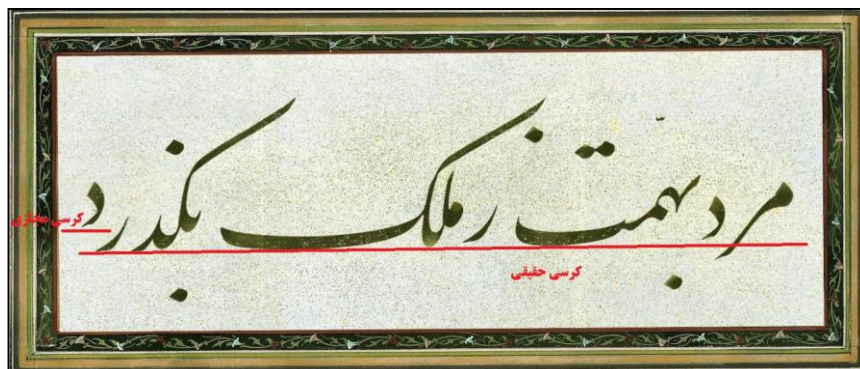 مرد بهمّت ز ملک بگذرد
کرسی مجازی
کرسی حقیقی